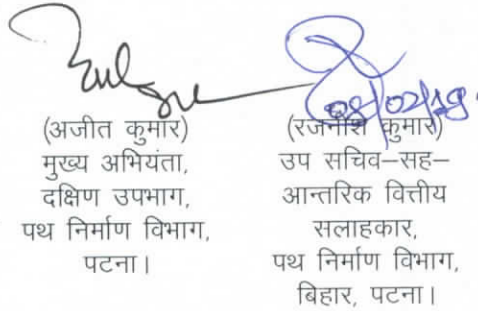 08/02/19
(अजीत कुमार)
मुख्य अभियंता,
दक्षिण उपभाग,
पथ निर्माण विभाग,
पटना।
(रजनीश कुमार)
उप सचिव–सह–
आन्तरिक वित्तीय
सलाहकार,
पथ निर्माण विभाग,
बिहार, पटना।